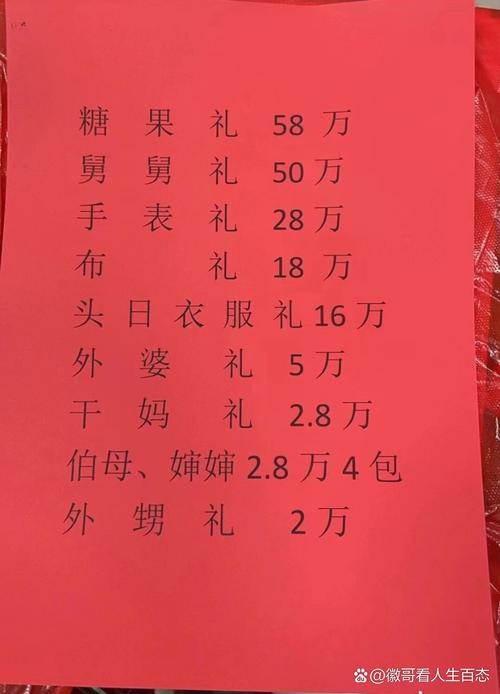 糖果礼 58 万
舅舅礼 50 万
手表礼 28 万
布礼 18 万
头日衣服礼 16 万
外婆礼 5 万
干妈礼 2.8 万
伯母、婶婶 2.8 万 4 包
外甥礼 2 万
@徽哥看人生百态